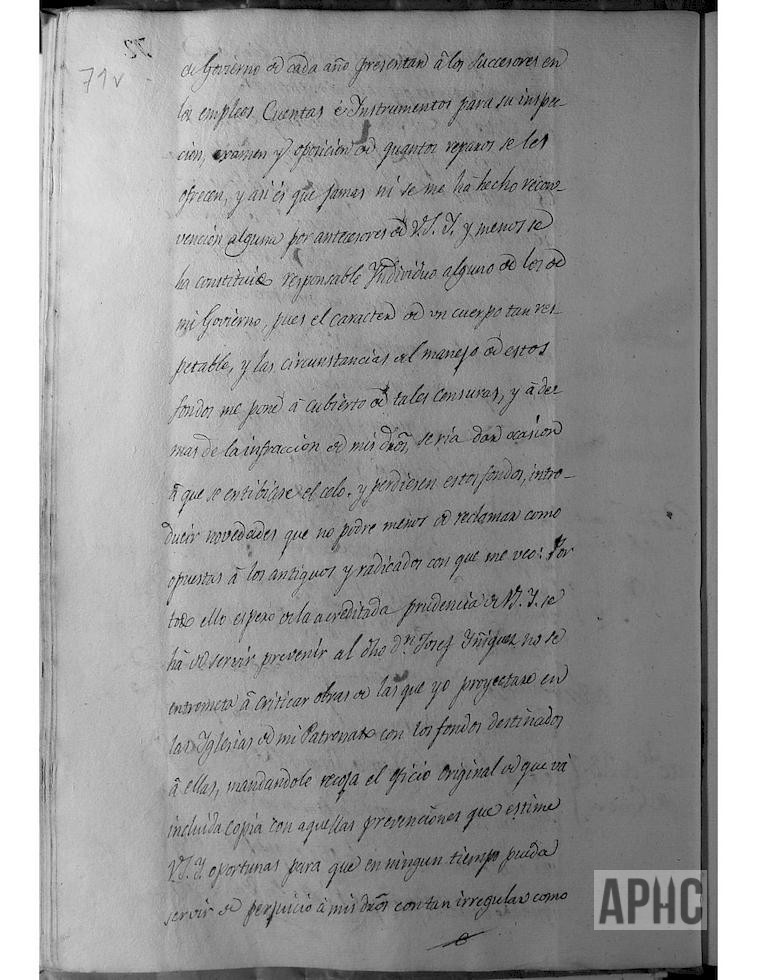 71v
de Govierno de cada año presentan â los Succesores en
los empleos, Cuentas ê Instrumentos para su inspec-
cion, examen y oposicion de quantos reparos se les
ofrecen, y asi es que jamas ni se me hâ hecho recon-
vencion alguna por antecesores de V.S.Y. y menos se
ha constituido responsable Yndividuo alguno de los de
mi Govierno, pues el caracter de un cuerpo tan res-
petable, y las circunstancias del manejo de estos
fondos me pone â cubierto de tales censuras, y â de
mas de la infraccion de mis dros, seria dar ocasion
â que se entibiase el celo, y perdiesen estos fondos, intro-
ducir novedades que no podre menos de reclamar como
opuestas â los antiguos y radicados con que me veo: Por
todo ello espero de la acreditada prudencia de V.S.Y. se
hâ de servir prevenir al dho dn. Josef Yñiguez, no se
entrometa â criticar obras de las que yo proyectare en
las Yglesias de mi Patronato con los fondos destinados
â ellas, mandandole recoja el oficio original de que vâ
incluida copia con aquellas prevenciones que estime
V.S.Y. oportunas para que en ningun tiempo pueda
servir de perjuicio â mis dros con tan irregular como
APHC